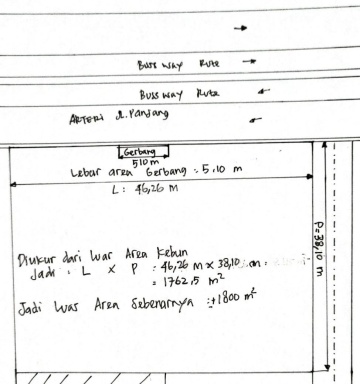 →
Buss way Rute →
Buss way Rute ←
ARTERI Jl. Panjang ←
Gerbang
510 m
Lebar area Gerbang : 5,10 m
L : 46,26 M
P = 38,10 m
Diukur dari luar Area Kebun
Jadi : L x P : 46,26 M x 38,10 m :
= 1762,5 m²
Jadi Luas Area Sebenarnya : ±1800 m²